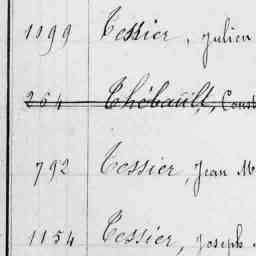 1199 Tessier, Julien
264 Thébault, Const
792 Tessier, Jean M
1154 Tessier, Joseph